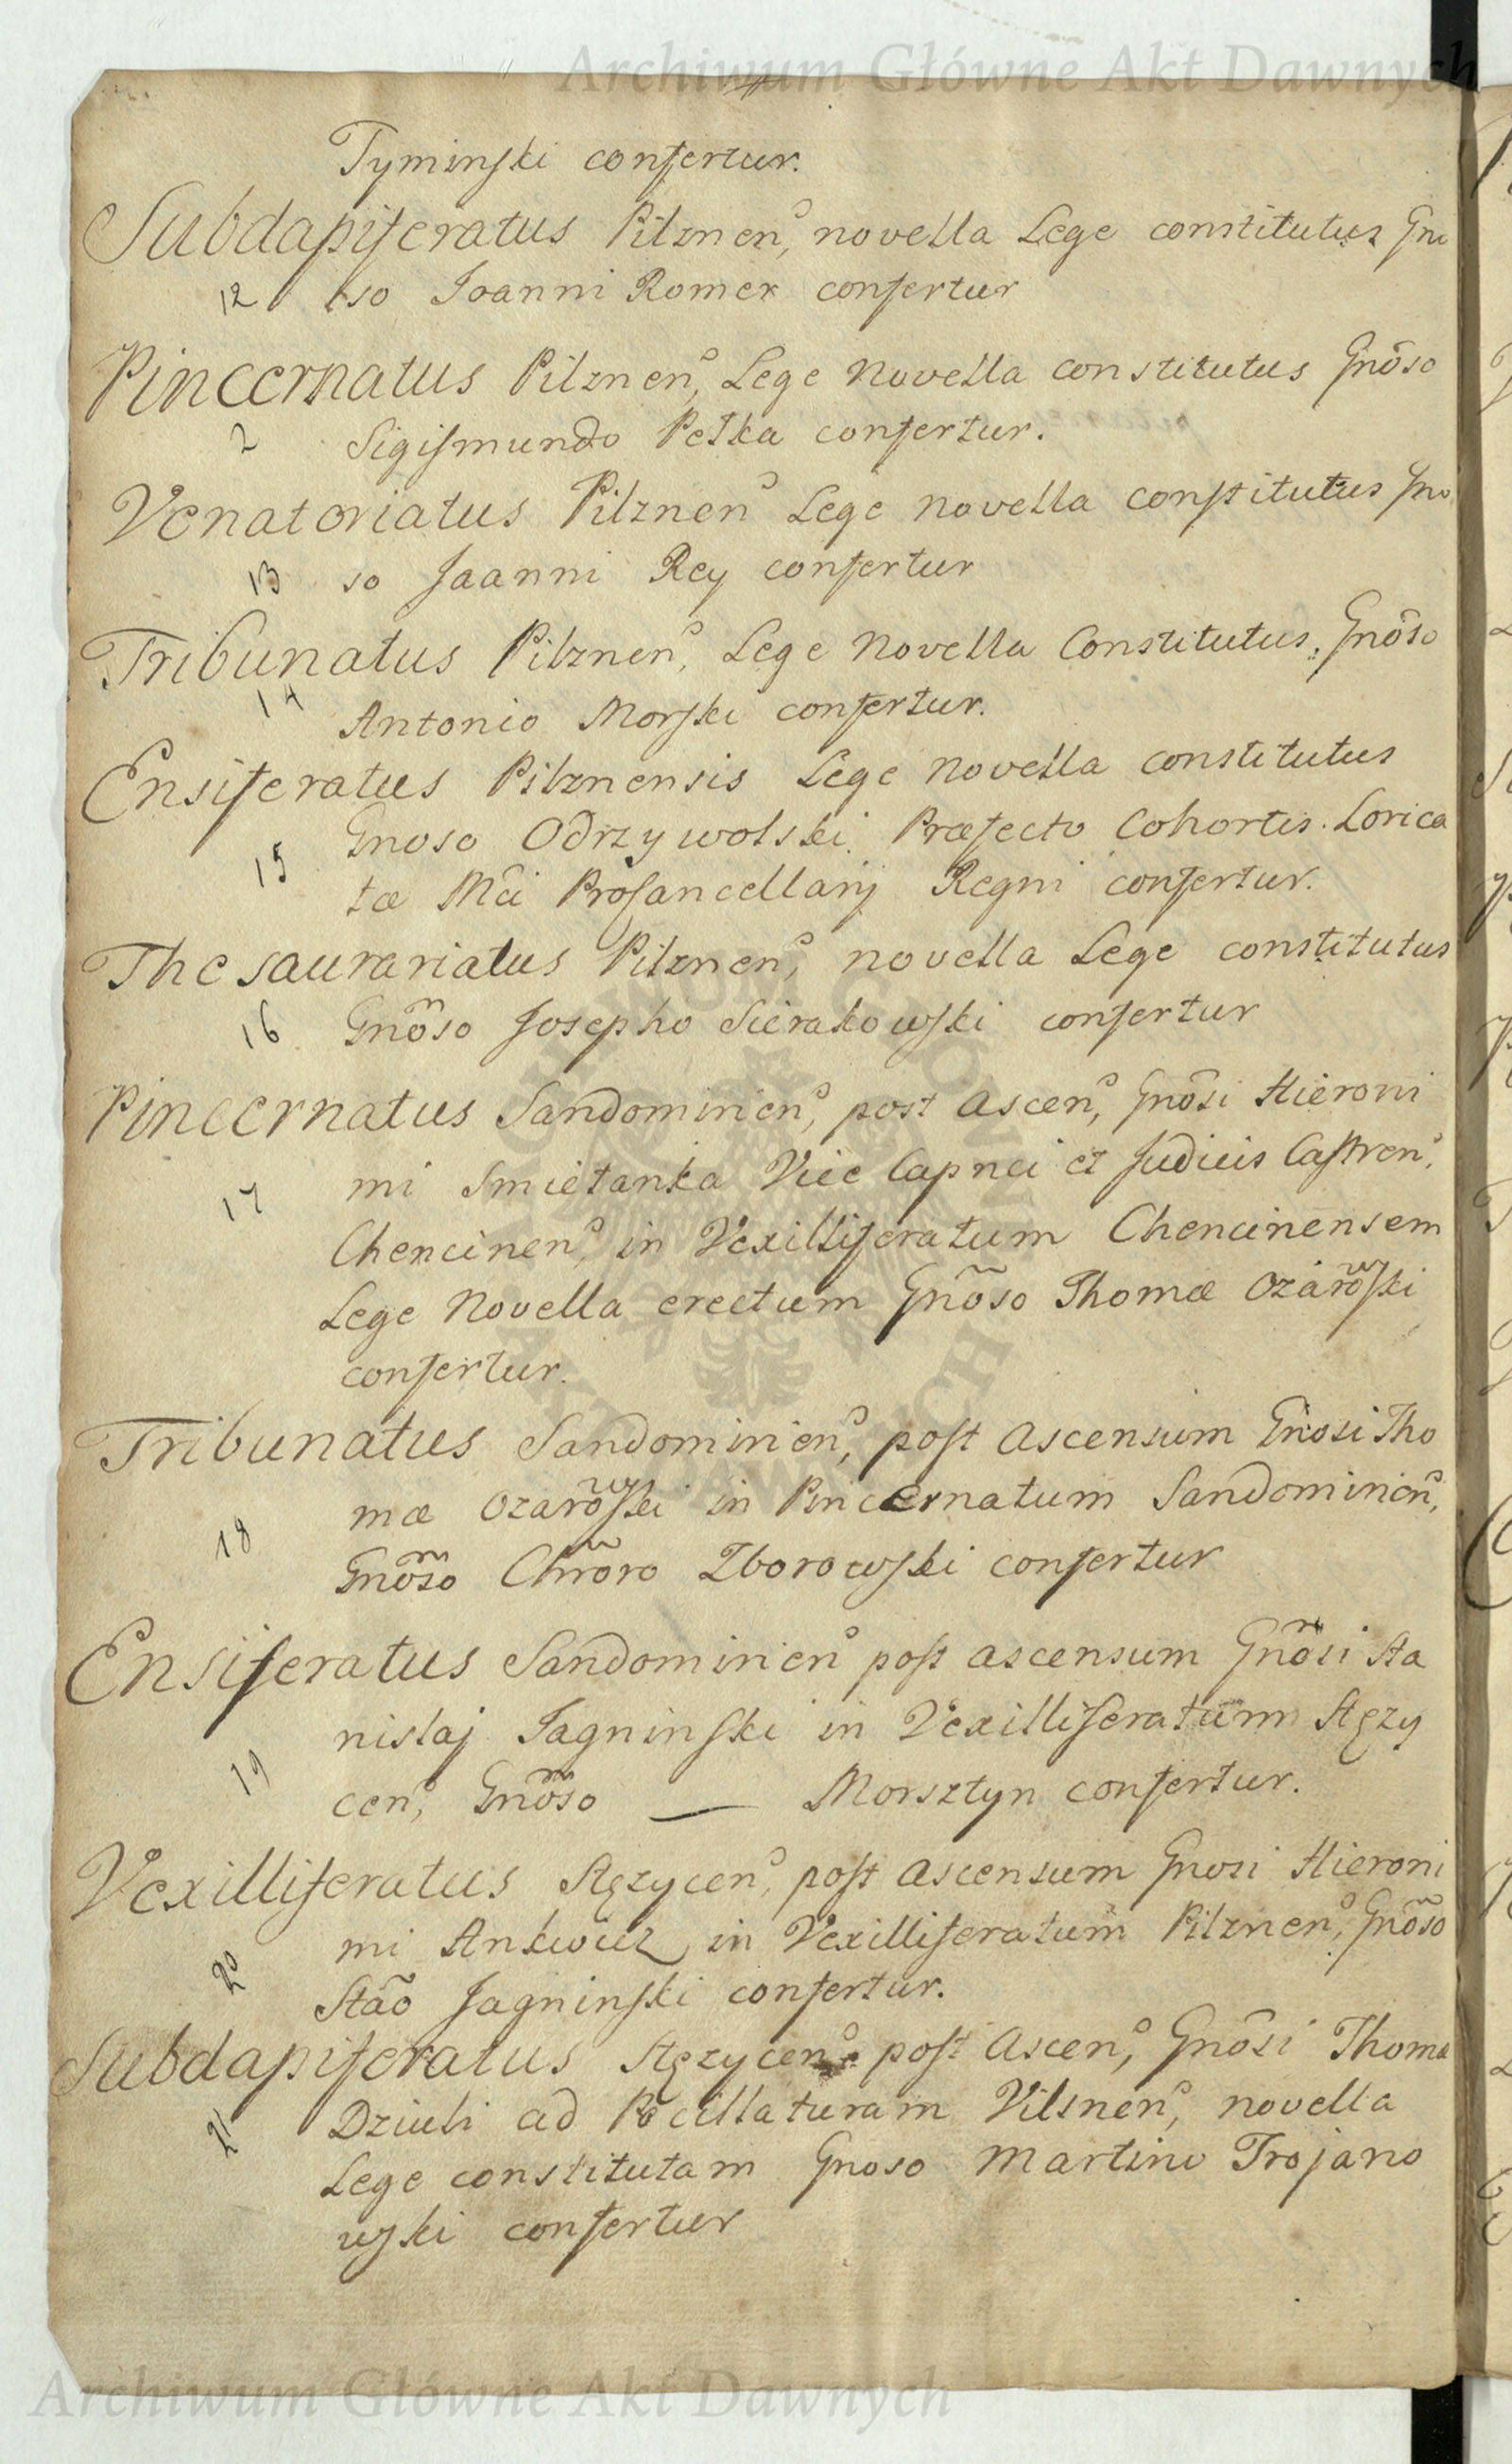 Archiwum Główne Akt Dawnych
Tyminski confertur.
Subdapiferatus Pilznen, novella Lege constitutus Gno
12 so Joanni Romer confertur
Pincernatus Pilznen, Lege Novella constitutus Gnõso
2 Sigismundo Pełka confertur.
Venatoriatus Pilznen Lege novella constitutus Gno
13 so Jaanni Rey confertur
Tribunatus Pilznen, Lege Novella Constitutus, Gnõso
14 Antonio Morski confertur.
Ensiferatus Pilznensis Lege Novella constitutus
Gnoso Odrzywolski Præfecto Cohortis Lorica
15 tæ Mci Procancellarij Regni confertur.
Thesaurariatus Pilznen, novella Lege constitutus
16 Gnõso Josepho Sierakowski confertur
Pincernatus Sandomirien, post Ascen, Gnõsi Hieroni
17 mi Smietanka Vice Capnei et Judicis Castren,
Chencinen, in Vexilliferatum Chencinensem
Lege Novella erectum Gnõso Thomæ Ozarõwski
confertur.
Tribunatus Sandomirien, post Ascensum Gnosi Tho
mæ Ozarõwski in Pincernatum Sandomirien,
18 Gnõso Chrõro Zborowski confertur
Ensiferatus Sandomirien post ascensum Gnõsi Sta
nislaj Jagninski in Vexilliferatum Stęzy
19 cen, Gnõso — Morsztyn confertur.
Vexilliferatus Stęzycen, post Ascensum Gnosi Hieroni
mi Ankwicz in Vexilliferatum Pilznen, Gnõso
20 Stão Jagninski confertur.
Subdapiferatus Stęzycen, post Ascen, Gnõsi Thomæ
21 Dziuli ad Pocillaturam Vilsnen, novella
Lege constitutam Gnoso Martino Trojano
wski confertur
Archiwum Główne Akt Dawnych